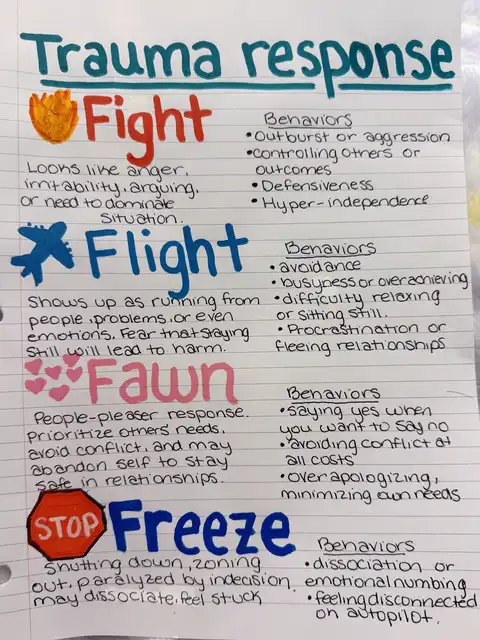 Trauma response
Fight
Looks like anger,
irritability, arguing,
or need to dominate
situation.
Behaviors
• Outburst or aggression
• controlling others or
outcomes
• Defensiveness
• Hyper-independence
Flight
Shows up as running from
people, problems, or even
emotions. Fear that staying
still will lead to harm.
Behaviors
• avoidance
• busyness or overachieving
• difficulty relaxing
or sitting still.
• Procrastination or
fleeing relationships
Fawn
People-pleaser response.
Prioritize others' needs,
avoid conflict, and may
abandon self to stay
safe in relationships.
Behaviors
• saying yes when
you want to say no
• avoiding conflict at
all costs
• over apologizing,
minimizing own needs
STOP
Freeze
Shutting down, zoning
out, paralyzed by indecision
may dissociate, feel stuck
Behaviors
• dissociation or
emotional numbing
• feeling disconnected
on autopilot.